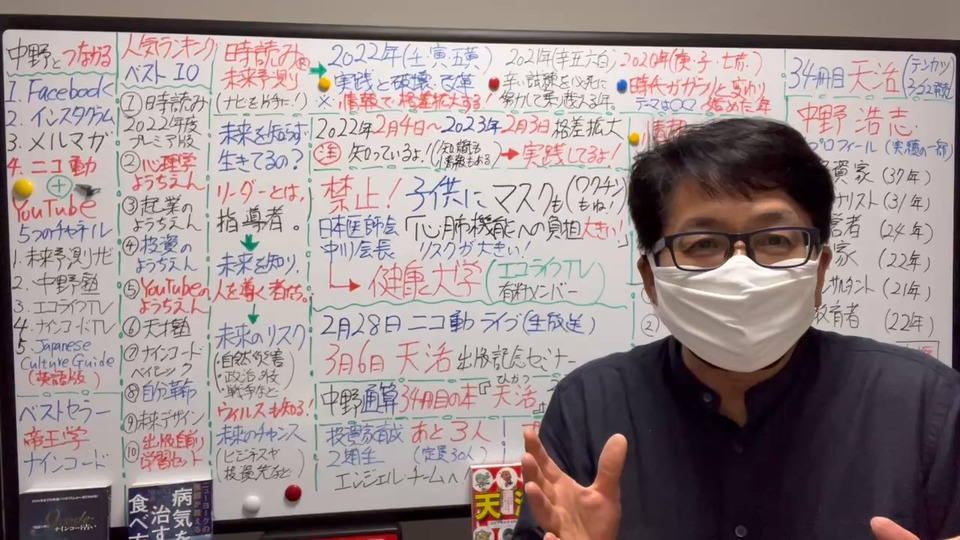 中野とつながる
1. Facebook
2. インスタグラム
3. メルマガ
4. ニコ動
+
YouTube
5つのチャネル
1. 未来予測ナビ
2. 中野塾
3. エコライフTV
4. ナインコードTV
5. Japanese
Culture Guide
(英語版)
ベストセラー
帝王学
ナインコード
人気ランキング
ベスト10
①日時読み
2022年度
プレミア版
②心理学
ようちえん
③起業の
ようちえん
④投資の
ようちえん
⑤YouTubeの
ようちえん
⑥天才塾
⑦ナインコード
ベイシック
⑧自分革命
⑨未来デザイン
⑩出版自前り
学習セット
日時読み
未来予測
未来を知らず
生きてるの?
リーダーとは、
指導者。
未来を知り、
人を導く者たち。
未来のリスク
・自然災害
・政治外交
・戦争など
ウィルスも知る!
未来のチャンス
(ビジネスや
投資先など)
2022年(壬・寅・五黄)
実践と破壊・改革
※情報で格差拡大する!
2021年(辛・丑・六白)
2020年(庚・子・七赤)
時代がガラッと変わり
テーマは〇〇
始めた年
2022年2月4日〜2023年2月3日 格差拡大
注 知っているよ!
→実践してるよ!
禁止! 子供にマスクも(ワクチンもね!)
日本医師会
中川会長
「心肺機能への負担大きい!」
リスクが大きい!
健康大学(エコライフTV
有料メンバー)
2月28日 ニコ動 ライブ(生放送)
3月6日 天活 出版記念セミナー
中野通算34冊目の本『天活
投資家育成 あと3人
2期生 (定員30人)
エンジェルチームへ
34冊目 天活
(テンカツ)
中野 浩志
プロフィール(実績の一部)
資家 (37年)
ナリスト (31年)
営者 (24年)
家 (22年)
ンサルタント (21年)
教育者 (22年)
ナインコード占い
ニューヨークの
病気を
治す
食べ
天活